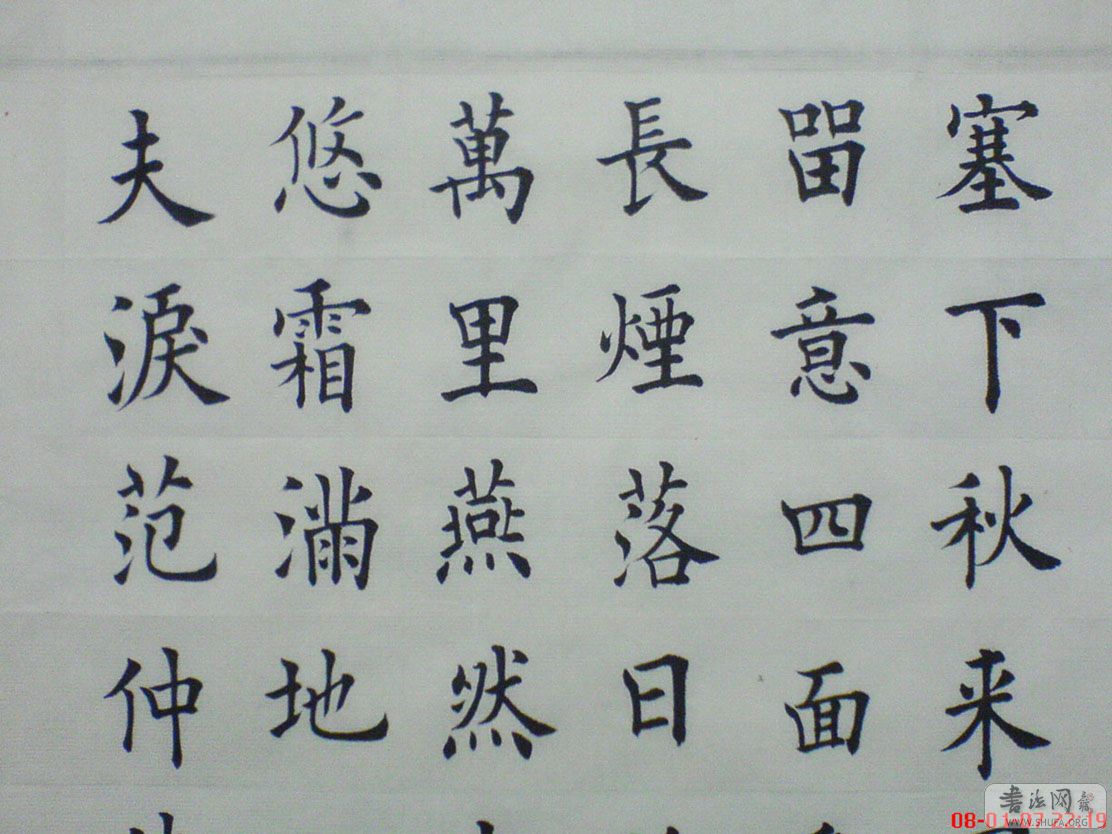 塞下秋来
留意四面
長煙落日
萬里燕然
悠霜滿地
夫淚范仲
书法网
WWW.SHUFA.ORG